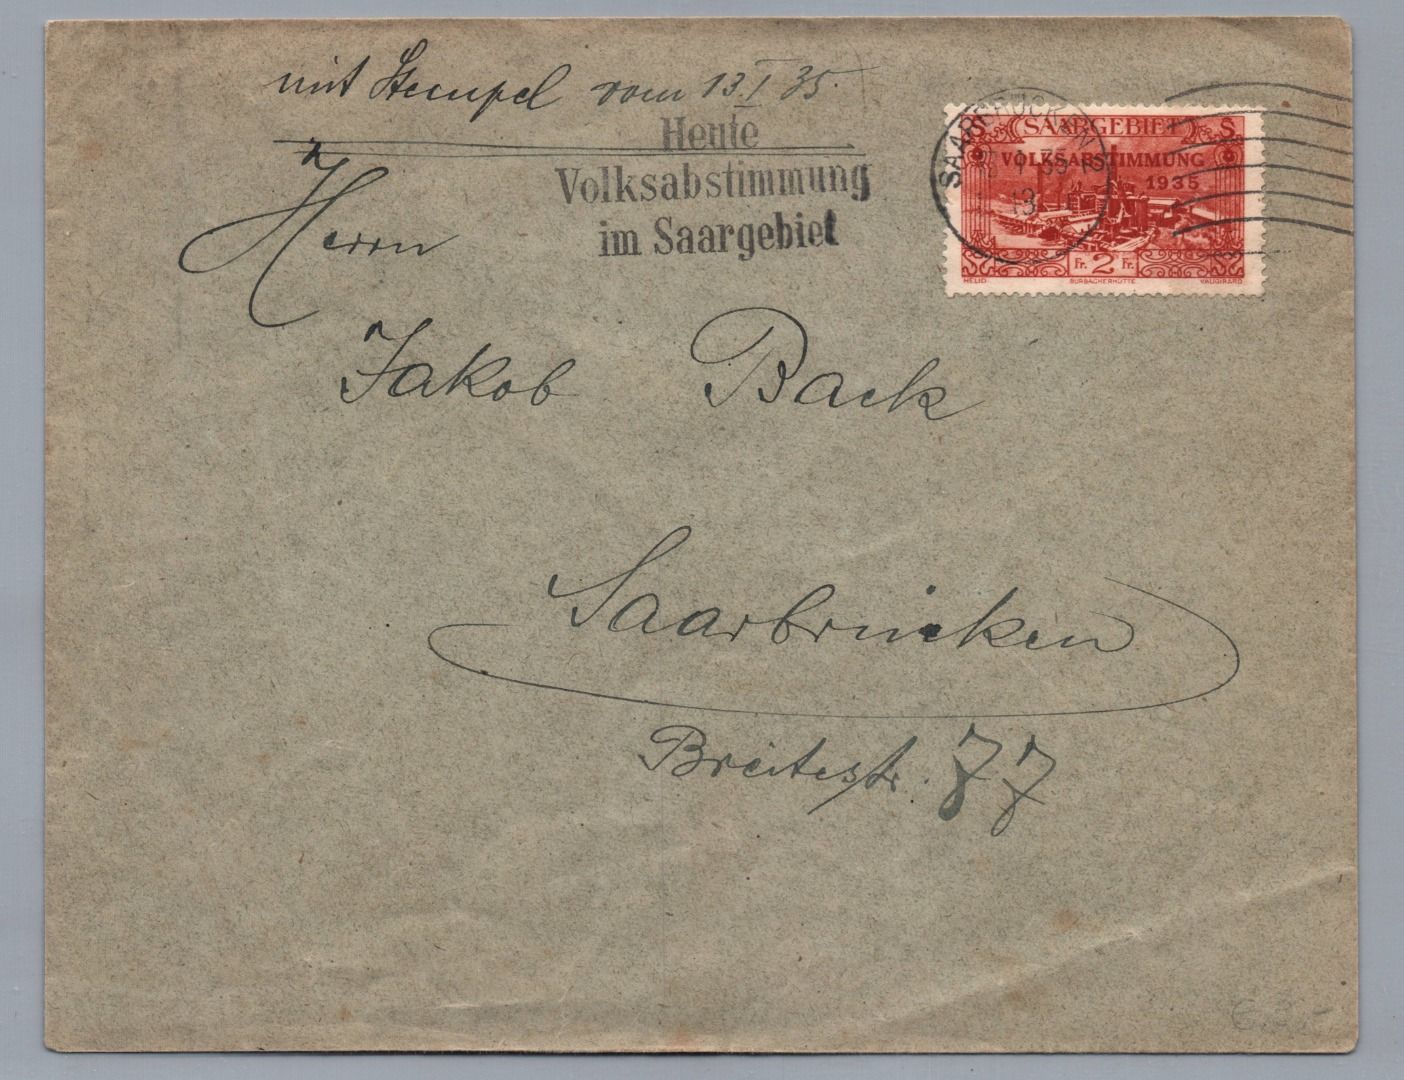 mit Stempel vom 13 I 35.
Heute
Volksabstimmung
im Saargebiet
SAARBRÜCKEN 2
35
13
S SAARGEBIET S
VOLKSABSTIMMUNG
1935
Fr. 2 Fr.
HELIO BURBACHERHÜTTE VAUGIRARD
Herrn
Jakob Back
Saarbrücken
Breitestr. 77